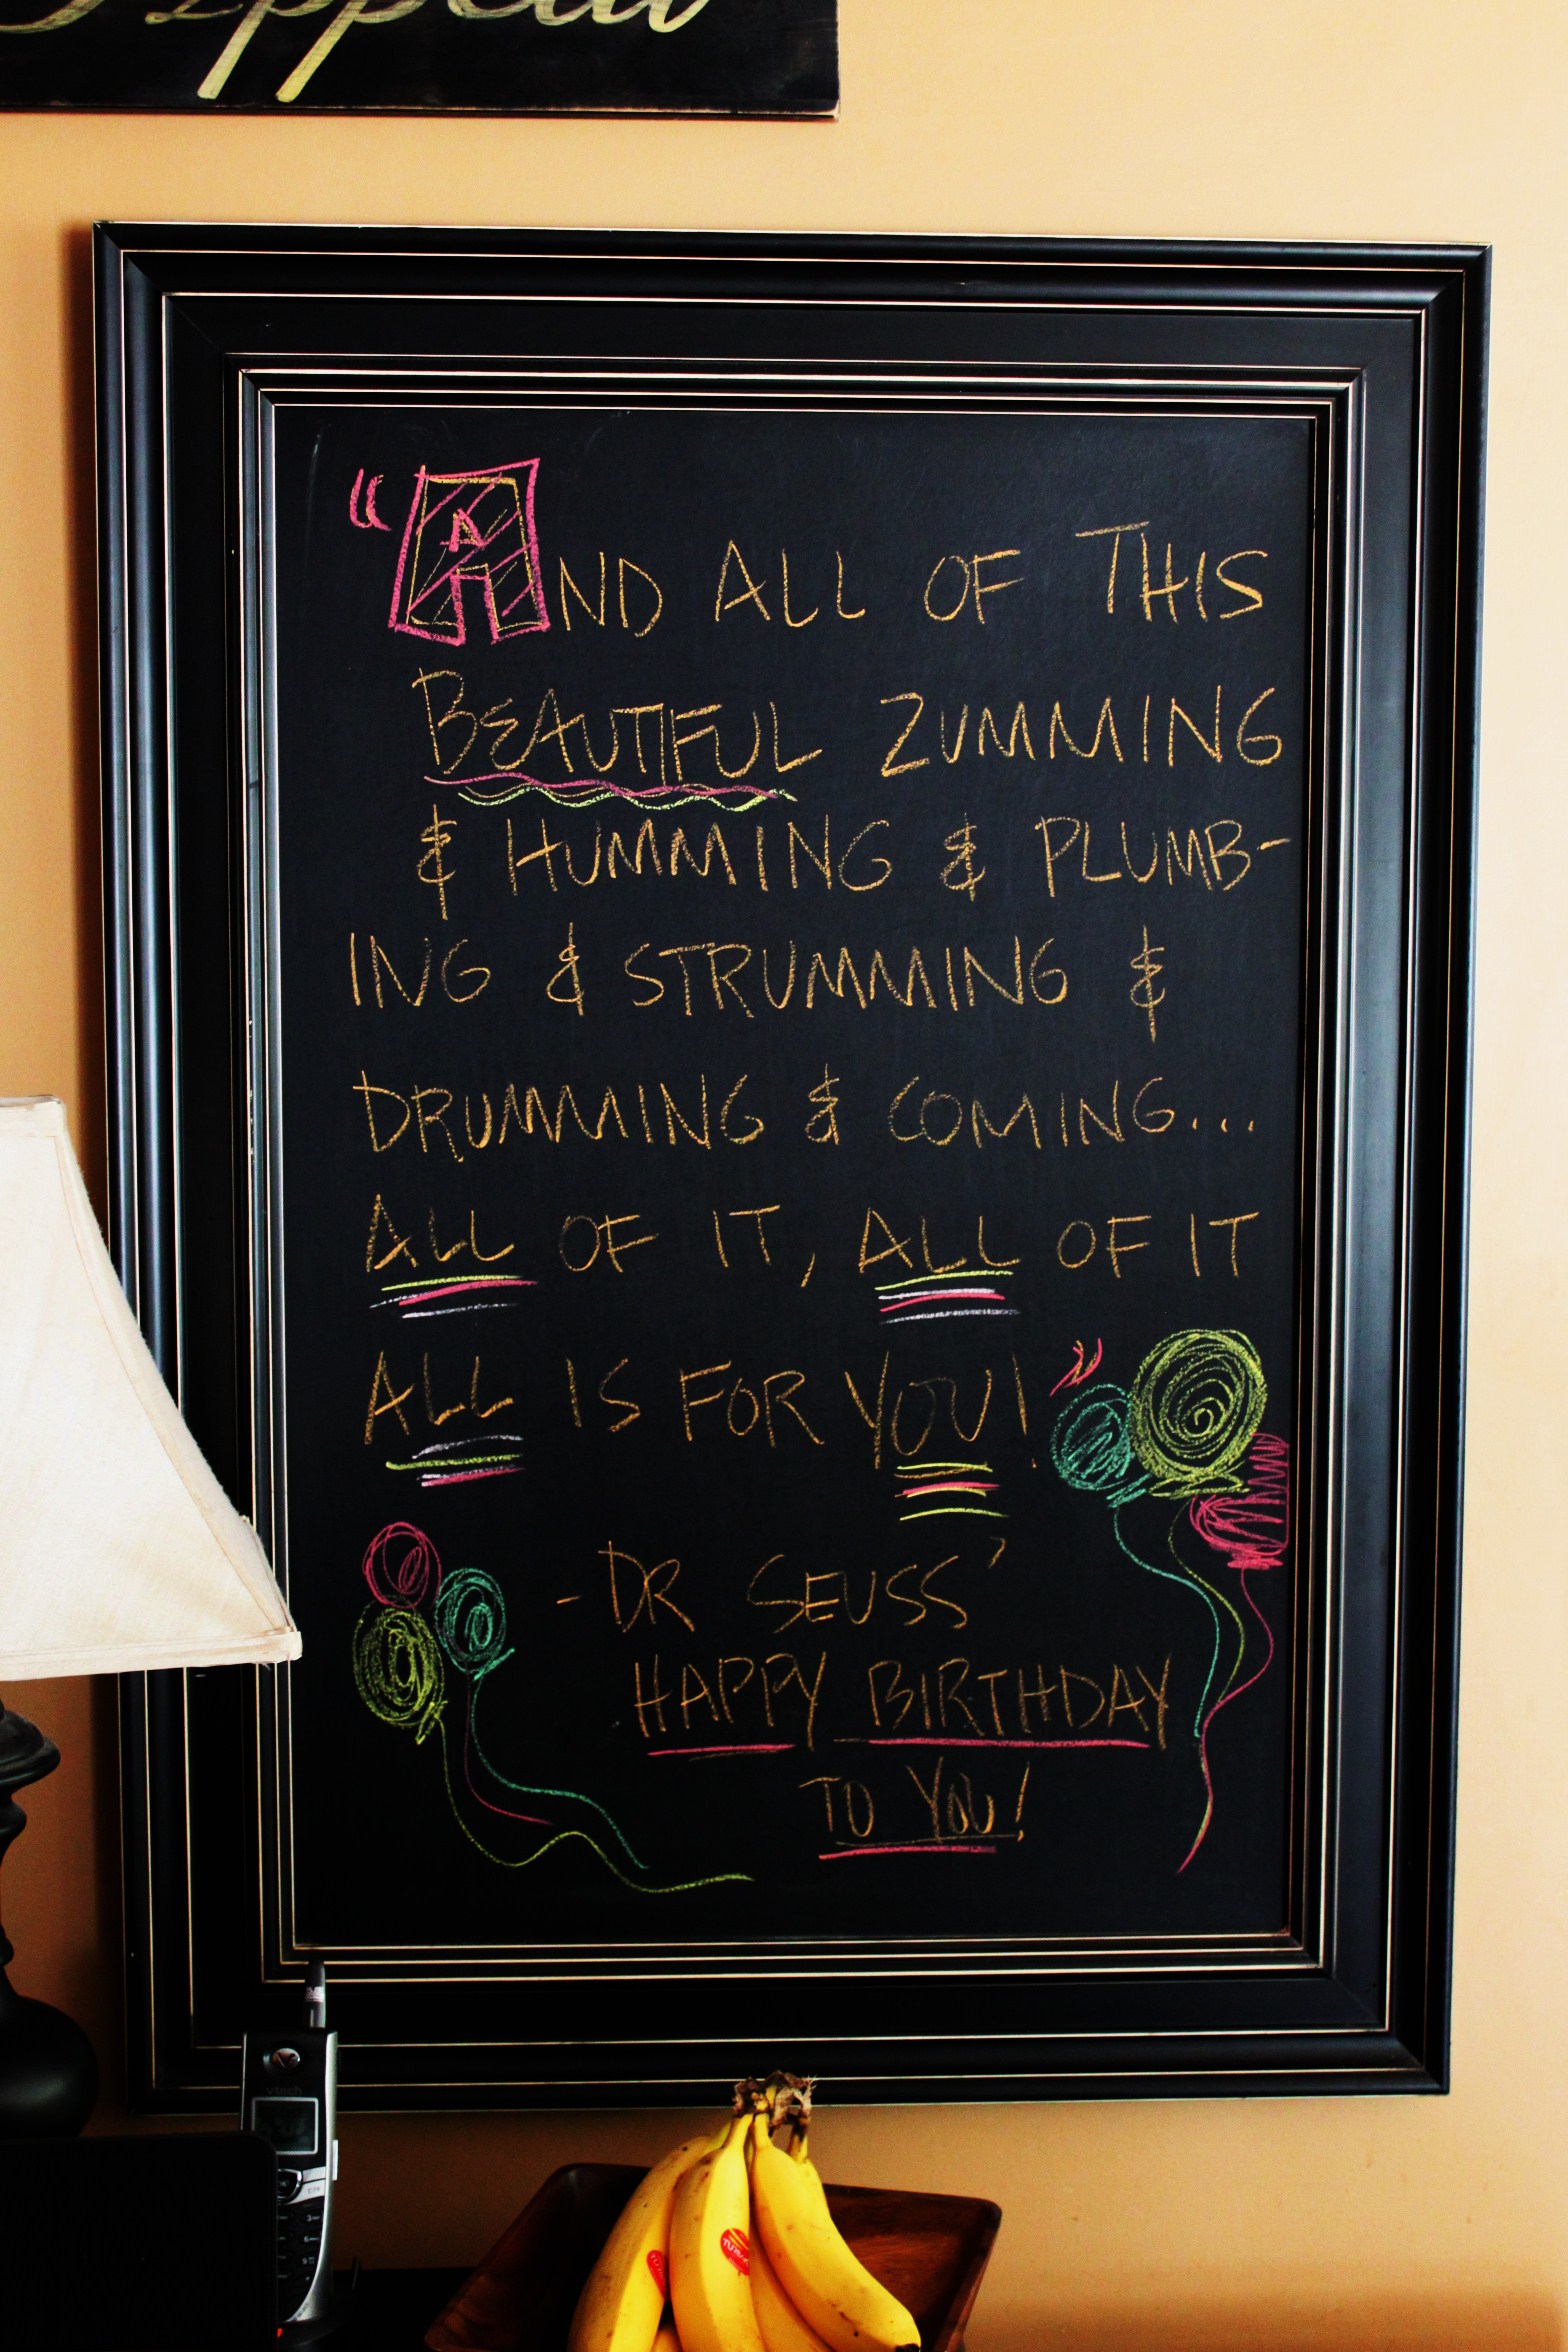 Appetit
"AND ALL OF THIS
BEAUTIFUL ZUMMING
& HUMMING & PLUMB-
ING & STRUMMING &
DRUMMING & COMING...
ALL OF IT, ALL OF IT
ALL IS FOR YOU!"
- DR SEUSS'
HAPPY BIRTHDAY
TO YOU!
vtech